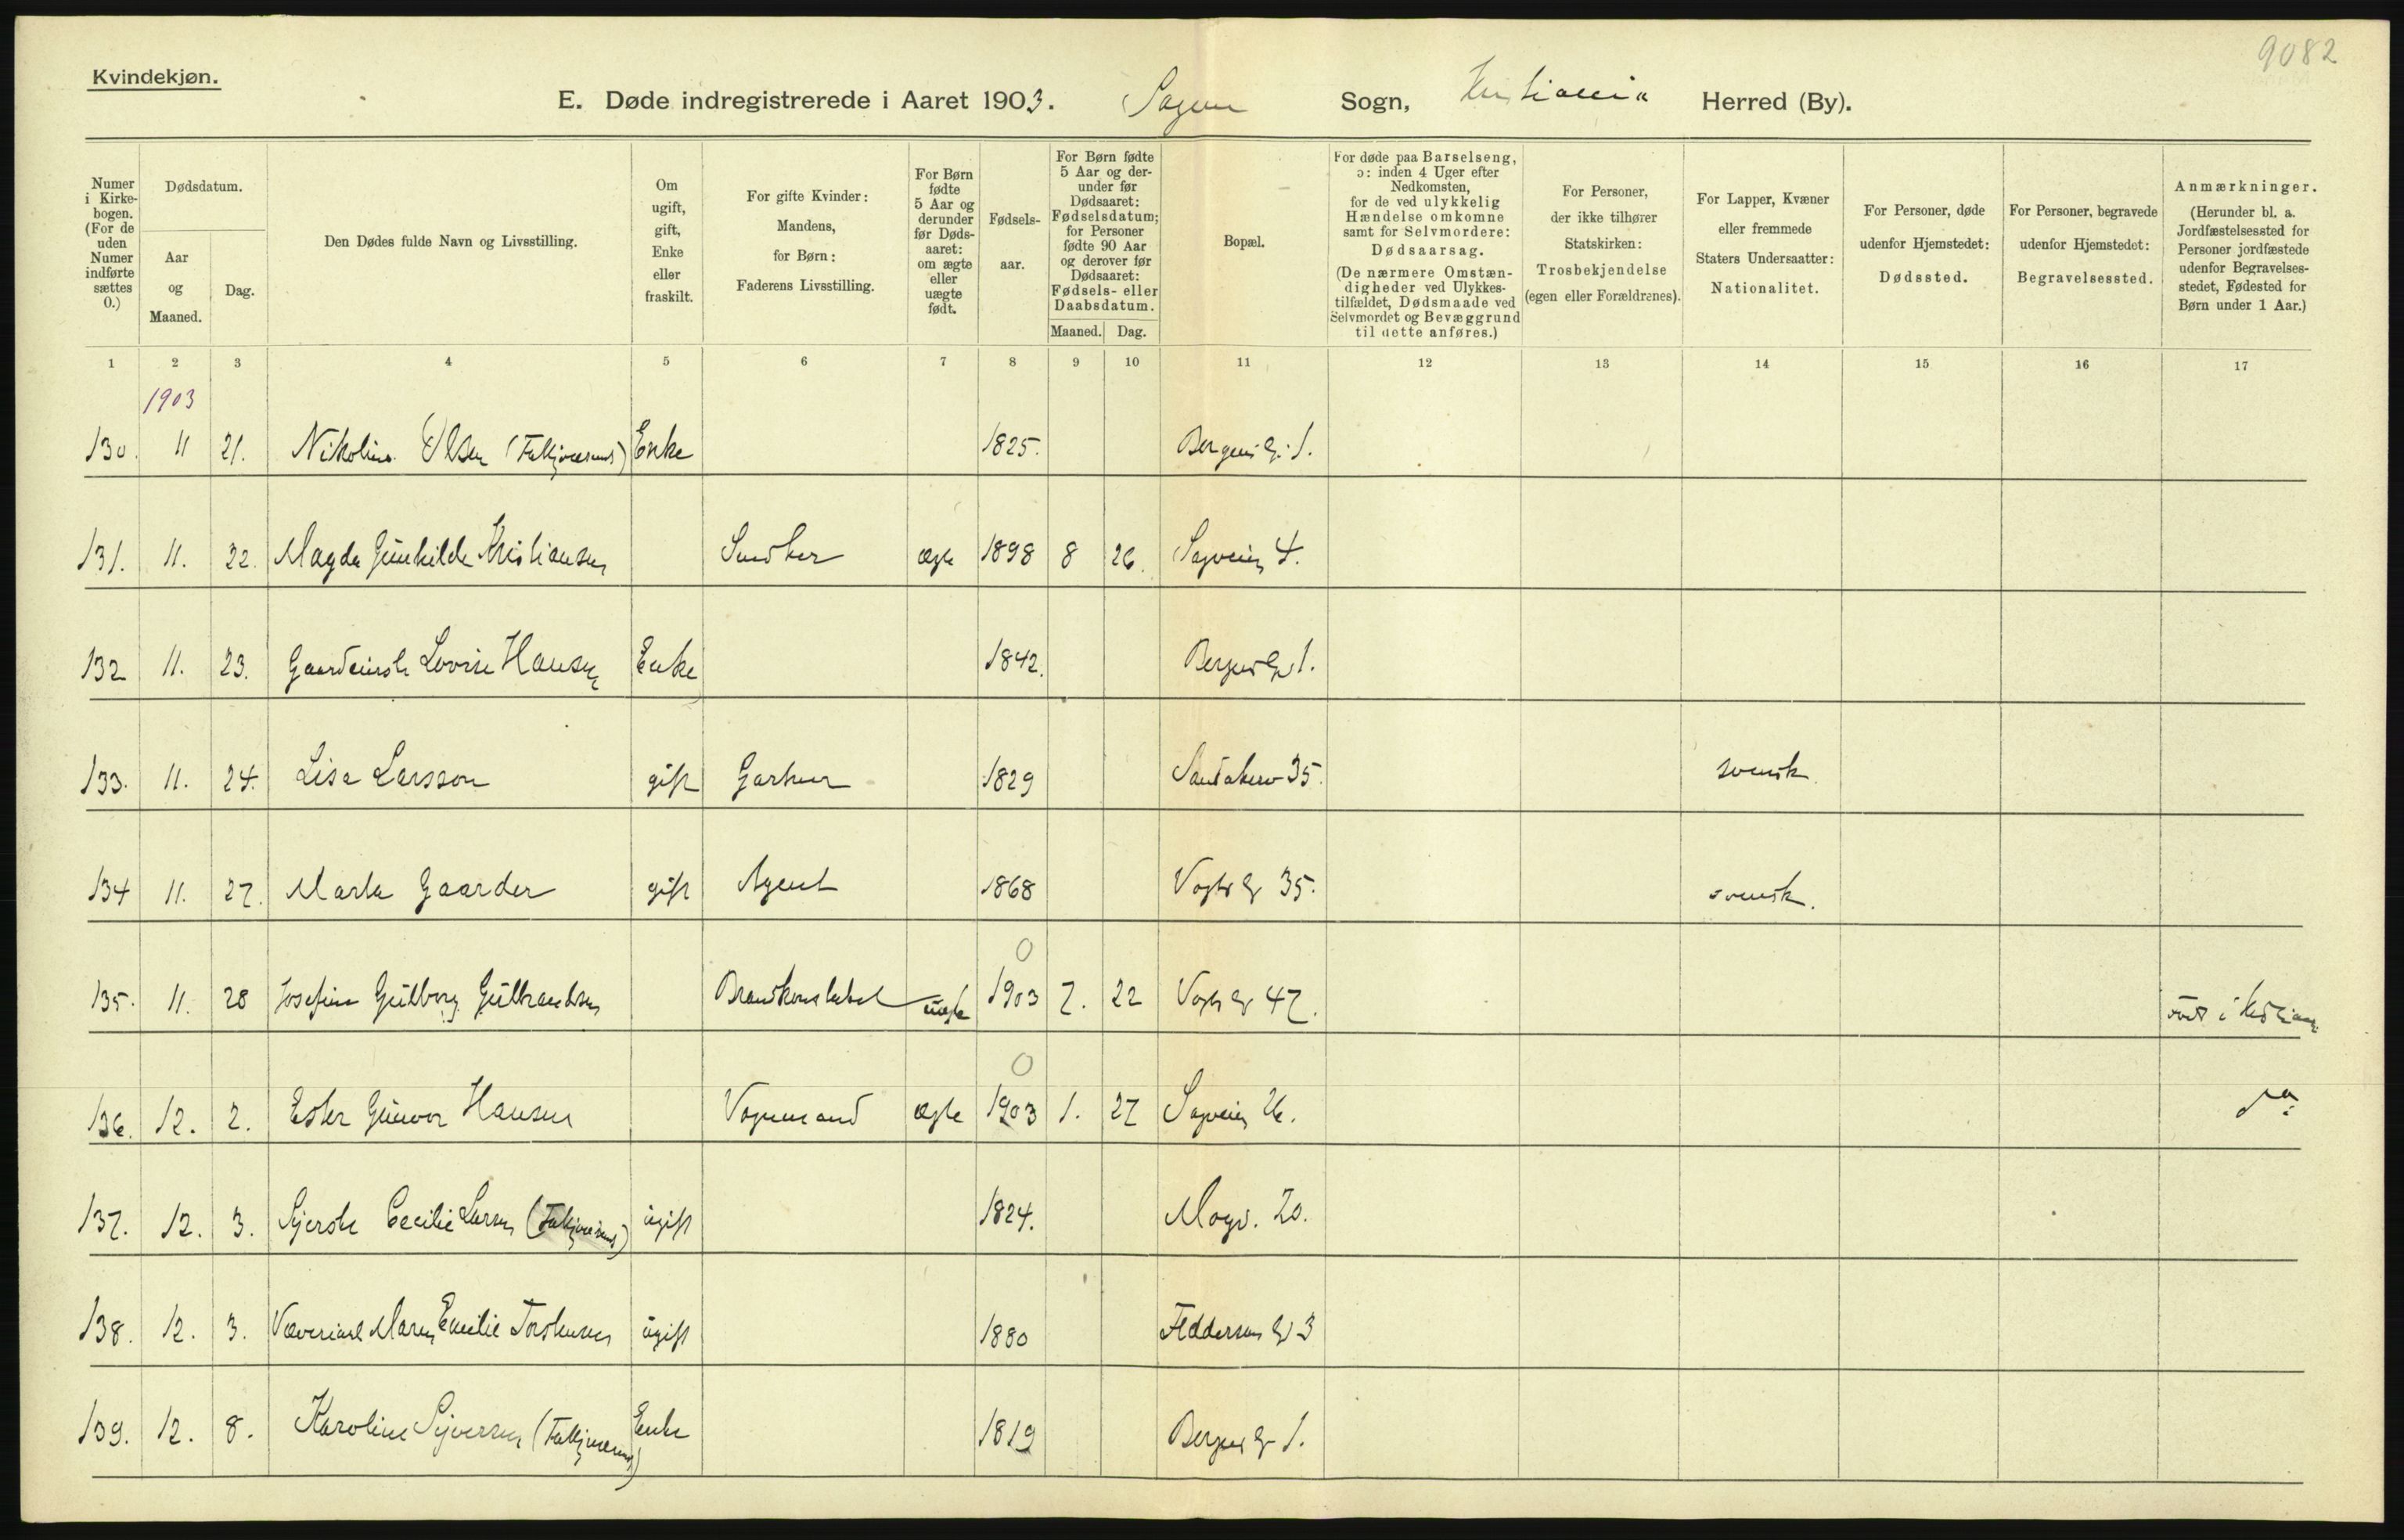 9082
Kvindekjøn.
E. Døde indregistrerede i Aaret 1903. Sagene Sogn, Kristiania Herred (By).
Numer i Kirkebogen. (For de uden Numer indførte sættes 0.)
Dødsdatum.
Aar og Maaned.
Dag.
Den Dødes fulde Navn og Livsstilling.
Om ugift, gift, Enke eller fraskilt.
For gifte Kvinder: Mandens, for Børn: Faderens Livsstilling.
For Børn fødte 5 Aar og derunder før Dødsaaret: om ægte eller uægte født.
Fødselsaar.
For Børn fødte 5 Aar og derunder før Dødsaaret: Fødselsdatum; for Personer fødte 90 Aar og derover før Dødsaaret: Fødsels- eller Daabsdatum.
Maaned. Dag.
Bopæl.
For døde paa Barselseng, ɔ: inden 4 Uger efter Nedkomsten, for de ved ulykkelig Hændelse omkomne samt for Selvmordere: Dødsaarsag. (De nærmere Omstændigheder ved Ulykkestilfældet, Dødsmaade ved Selvmordet og Bevæggrund til dette anføres.)
For Personer, der ikke tilhører Statskirken: Trosbekjendelse (egen eller Forældrenes).
For Lapper, Kvæner eller fremmede Staters Undersaatter: Nationalitet.
For Personer, døde udenfor Hjemstedet: Dødssted.
For Personer, begravede udenfor Hjemstedet: Begravelsessted.
Anmærkninger. (Herunder bl. a. Jordfæstelsessted for Personer jordfæstede udenfor Begravelsesstedet, Fødested for Børn under 1 Aar.)
1 2 3 4 5 6 7 8 9 10 11 12 13 14 15 16 17
1903
130. 11 21. Nikoline Olsen Enke 1825. Bergens G. 1.
131. 11. 22. Magda Gunhilde Kristiansen Snedker ægte 1898 8 26. Sagveien 4.
132 11. 23. Lovise Hansen Enke 1842. Bergens G. 1.
133. 11. 24. Lise Larsson gift Gartner 1829 35. svensk.
134 11. 27. Marta Gaarder gift Agent 1868 Vogts G 35. svensk.
0
135. 11. 28 Josefine Gudborg Gulbrandsen Brandkonstabel uægte 1903 7. 22 Vogts G 47. i Kristiania
0
136. 12. 2. Ester Gunvor Hansen Vognmand ægte 1903 1. 27 Sagveien 26. do
137. 12. 3. Syerske Cecilie Larsen ugift 1824. 20.
138. 12. 3. Væverinde Maren Emilie Torstensen ugift 1880 Feddersens G 3
139. 12. 8. Karoline Syversen Enke 1819 Bergens G 1.